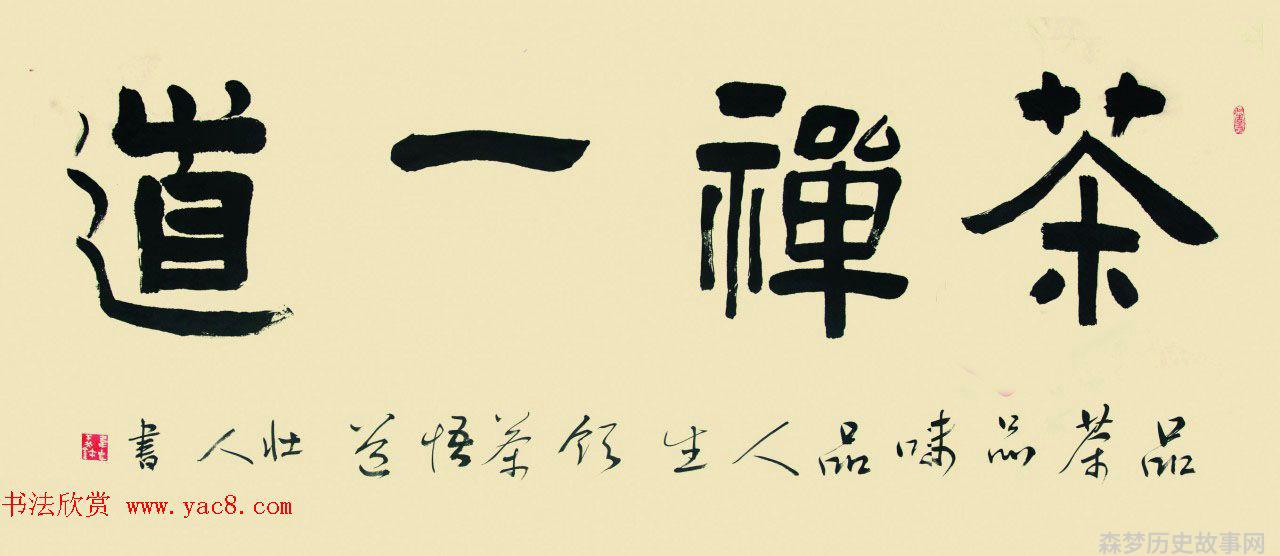 茶禪一道
品茶品味品人生饮茶悟道壮人書
书法欣赏 www.yac8.com
森梦历史故事网